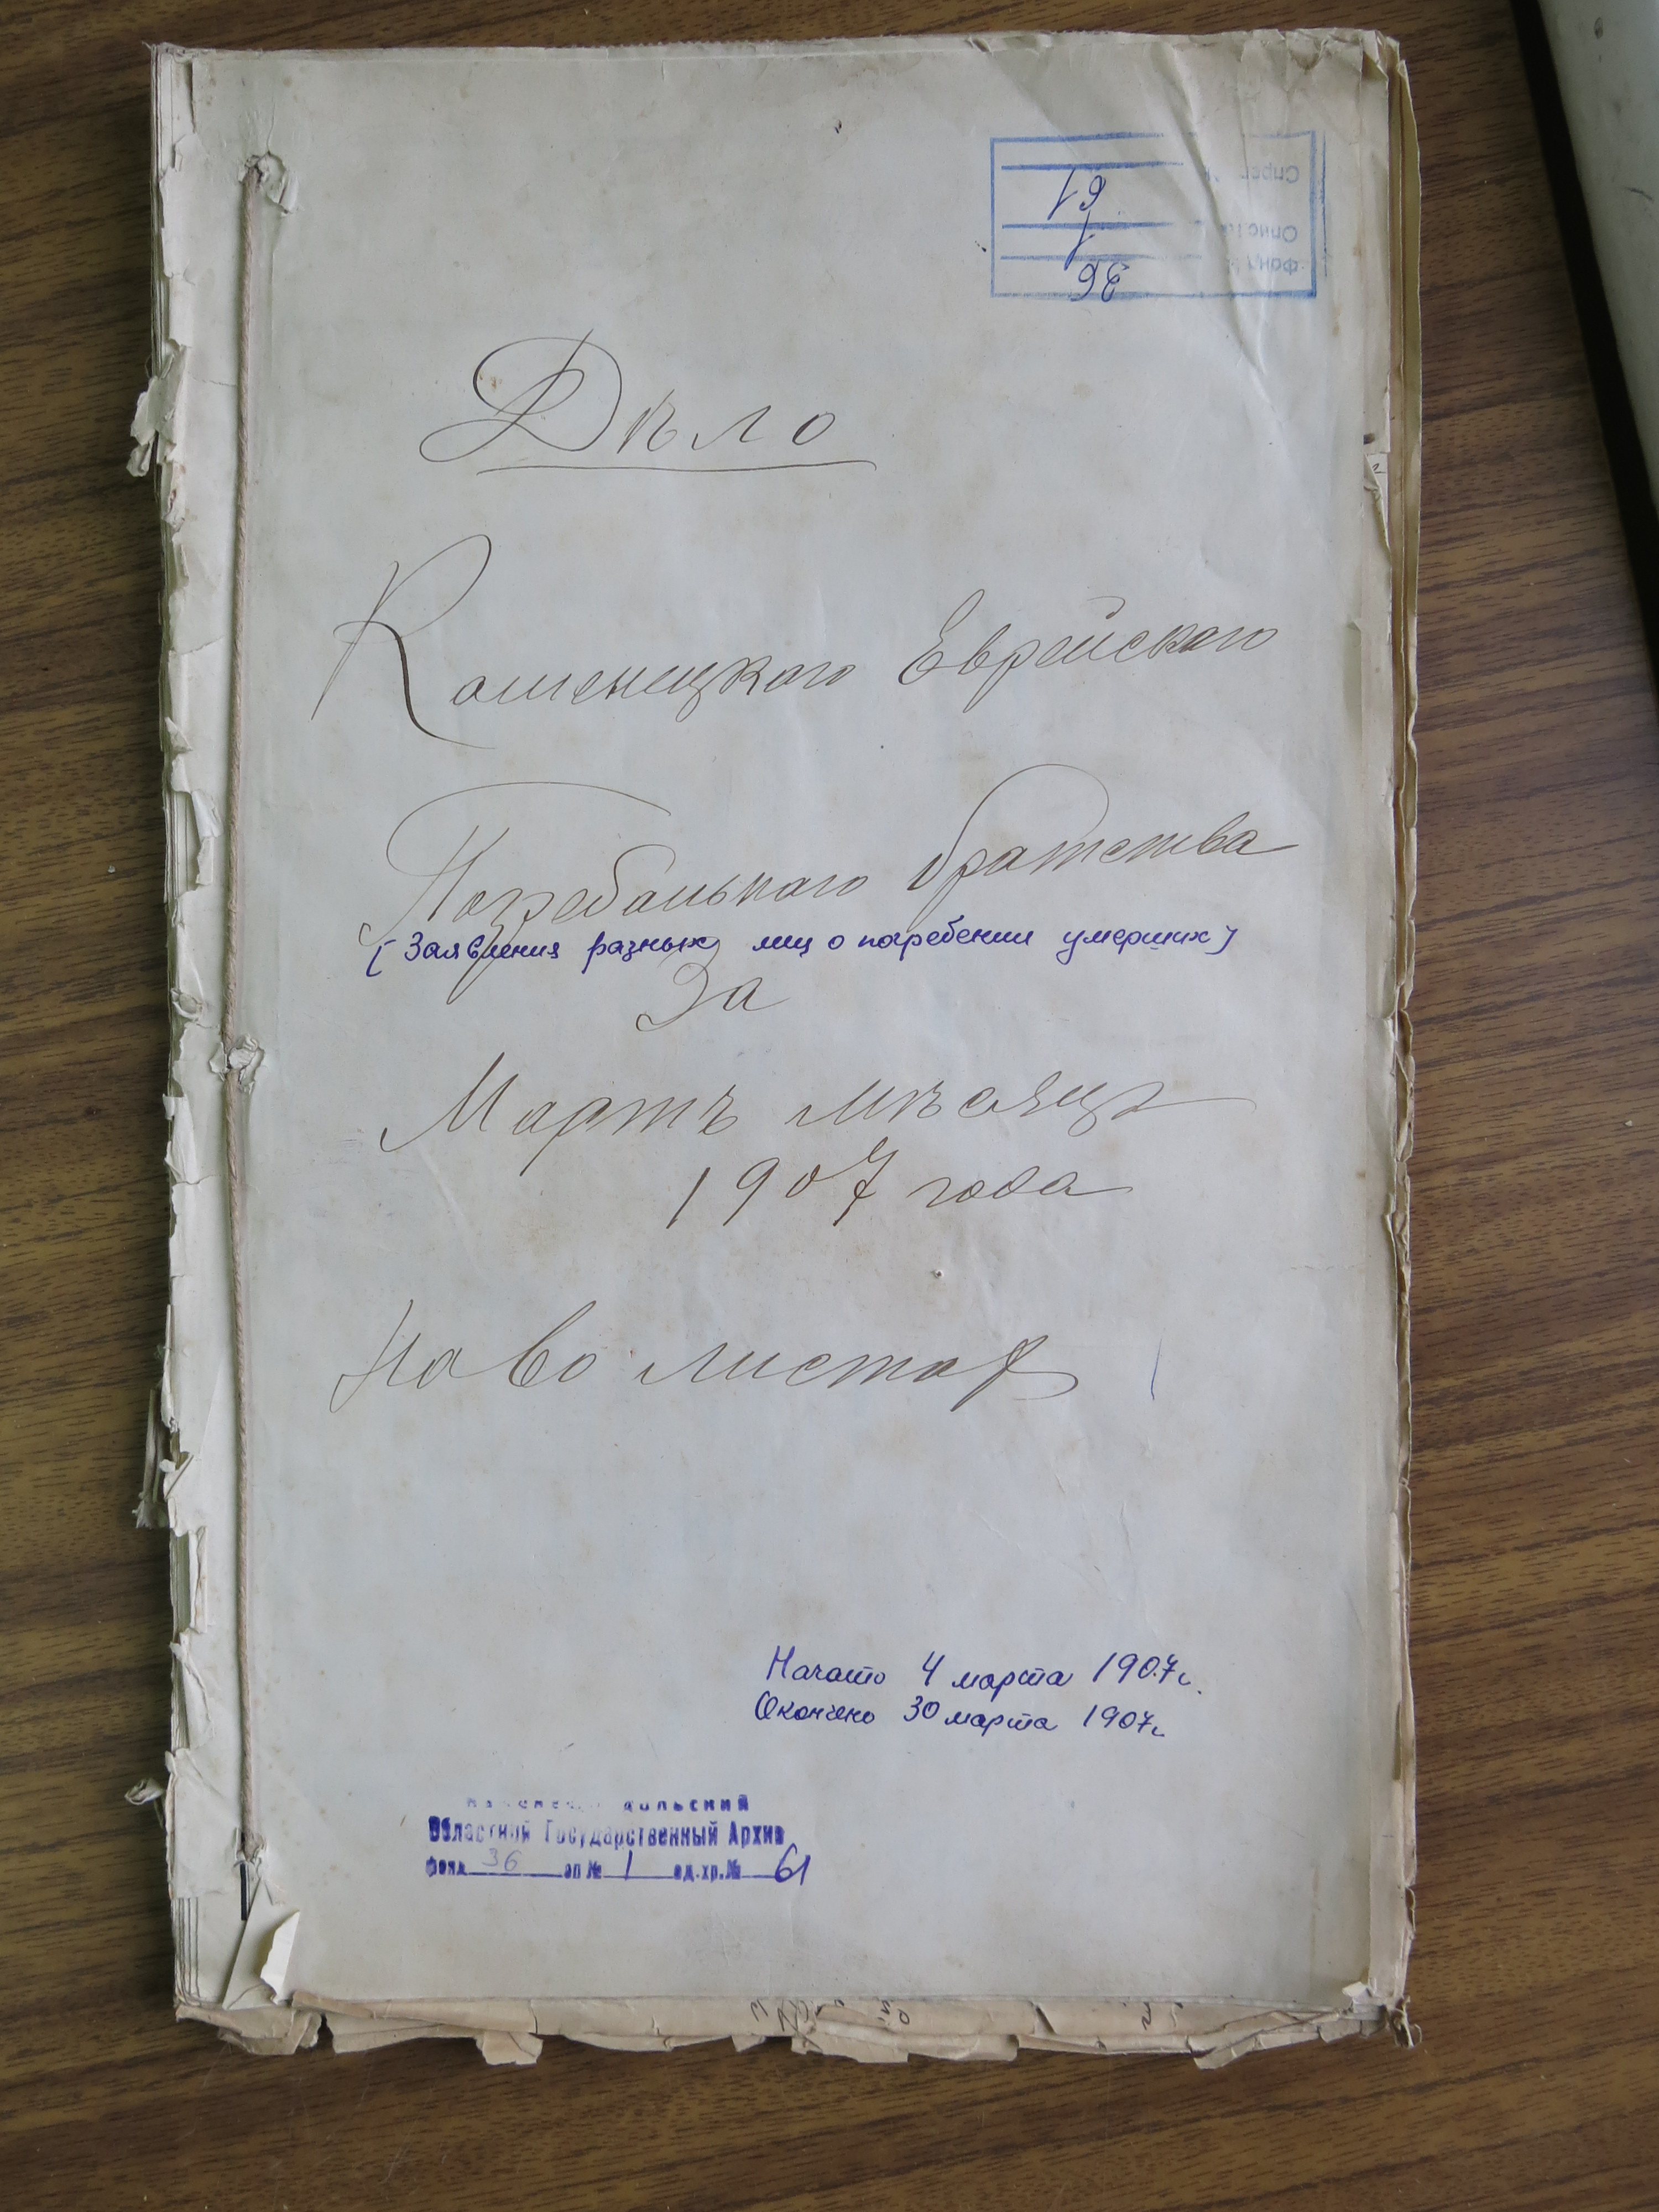 Справ. №
61
Опись №
1
Фонд №
36
Дѣло
Каменецкаго Еврейскаго
Погребальнаго братства
(Заявления разных лиц о погребении умерших)
За
Мартъ мѣсяцъ
1907 года
На во листах
Начато 4 марта 1907 г.
Окончено 30 марта 1907 г.
Областной Государственный Архив
фонд 36 оп № 1 ед.хр.№ 61